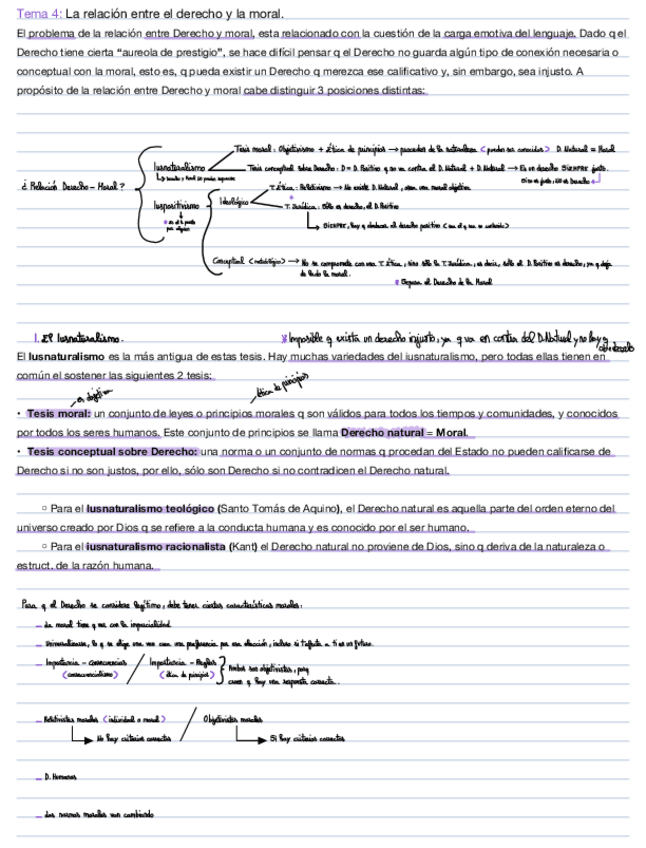 Tema 4: La relación entre el derecho y la moral.
El problema de la relación entre Derecho y moral, esta relacionado con la cuestión de la carga emotiva del lenguaje. Dado q el
Derecho tiene cierta “aureola de prestigio”, se hace difícil pensar q el Derecho no guarda algún tipo de conexión necesaria o
conceptual con la moral, esto es, q pueda existir un Derecho q merezca ese calificativo y, sin embargo, sea injusto. A
propósito de la relación entre Derecho y moral cabe distinguir 3 posiciones distintas:
Tesis moral: Objetivismo + Ética de principios → proceden de la naturaleza (pueden ser conocidos) D. Natural = Moral
Iusnaturalismo
Tesis conceptual sobre Derecho: D = D. Positivo q no va contra el D. Natural + D. Natural → Es un derecho SIEMPRE justo.
Si no es justo, NO es Derecho
¿Relación Derecho - Moral?
T. Ética: Relativismo → No existe D. Natural, una moral objetiva
Iuspositivismo
Ideológico
T. Jurídica: Sólo es derecho, el D. Positivo
SIEMPRE, hay q obedecer el derecho positivo
Conceptual (metodológico) → No se compromete con una T. Ética, sino sólo la T. Jurídica, es decir, sólo el D. Positivo es derecho, ya q deja
de lado la moral.
Separa el Derecho de la Moral
1. El Iusnaturalismo.
* Imposible q exista un derecho injusto, ya q va en contra del D. Natural y no hay q obedecerlo
El Iusnaturalismo es la más antigua de estas tesis. Hay muchas variedades del iusnaturalismo, pero todas ellas tienen en
común el sostener las siguientes 2 tesis:
es objetiva
ética de principios
• Tesis moral: un conjunto de leyes o principios morales q son válidos para todos los tiempos y comunidades, y conocidos
por todos los seres humanos. Este conjunto de principios se llama Derecho natural = Moral.
• Tesis conceptual sobre Derecho: una norma o un conjunto de normas q procedan del Estado no pueden calificarse de
Derecho si no son justos, por ello, sólo son Derecho si no contradicen el Derecho natural.
○ Para el Iusnaturalismo teológico (Santo Tomás de Aquino), el Derecho natural es aquella parte del orden eterno del
universo creado por Dios q se refiere a la conducta humana y es conocido por el ser humano.
○ Para el iusnaturalismo racionalista (Kant) el Derecho natural no proviene de Dios, sino q deriva de la naturaleza o
estruct. de la razón humana.
Para q el Derecho se considere legítimo, debe tener ciertas características morales:
– La moral tiene q ver con la imparcialidad
– Universalizarse, lo q se elige
– Importancia - consecuencias / Importancia - Reglas
(consecuencialismo) (ética de principios)
Ambos son objetivistas, porq
creen q hay una respuesta correcta.
– Relativistas morales (individual o moral) / Objetivistas morales
No hay criterios correctos
Si hay criterios correctos
– D. Humanos
– Las normas morales van cambiando